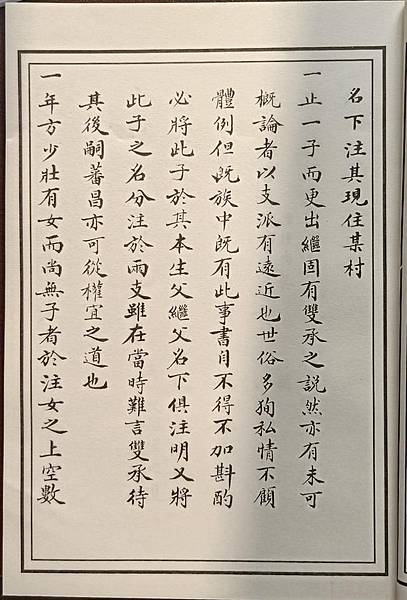 名下注其現住某村
一止一子而更出繼固有雙承之説然亦有未可
概論者以支派有遠近也世俗多狥私情不顧
體例但既族中既有此事書目不得不加斟酌
必將此子於其本生父繼父名下俱注明又將
此子之名分注於兩支雖在當時難言雙承待
其後嗣蕃昌亦可從權宜之道也
一年方少壯有女而尚無子者於注女之上空數